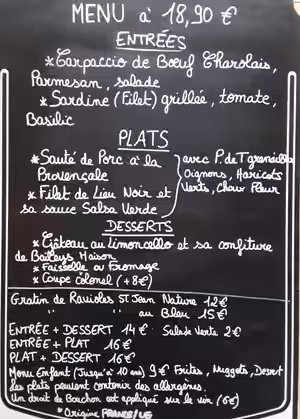 MENU à 18,90 €
ENTRÉES
* Carpaccio de Bœuf Charolais,
Parmesan, salade
* Sardine (Filet) grillée, tomate,
Basilic
PLATS
* Sauté de Porc à la
Provençale
* Filet de Lieu Noir et
sa sauce Salsa Verde
avec P. de T grenaille
Oignons, Haricots
Verts, Choux Fleur
DESSERTS
* Gâteau au Limoncello et sa confiture
de Baileys Maison
* Faisselle ou Fromage
* Coupe Colonel (+8€)
Gratin de Ravioles St Jean Nature 12€
" " au Bleu 15€
ENTRÉE + DESSERT 14€ Salade Verte 2€
ENTRÉE + PLAT 16€
PLAT + DESSERT 16€
Menu Enfant (Jusqu'à 10 ans) 9€ Frites, Nuggets, Dessert
Les plats peuvent contenir des allergènes.
Un droit de Bouchon est appliqué sur le vin (6€)
* Origine FRANCE/UE